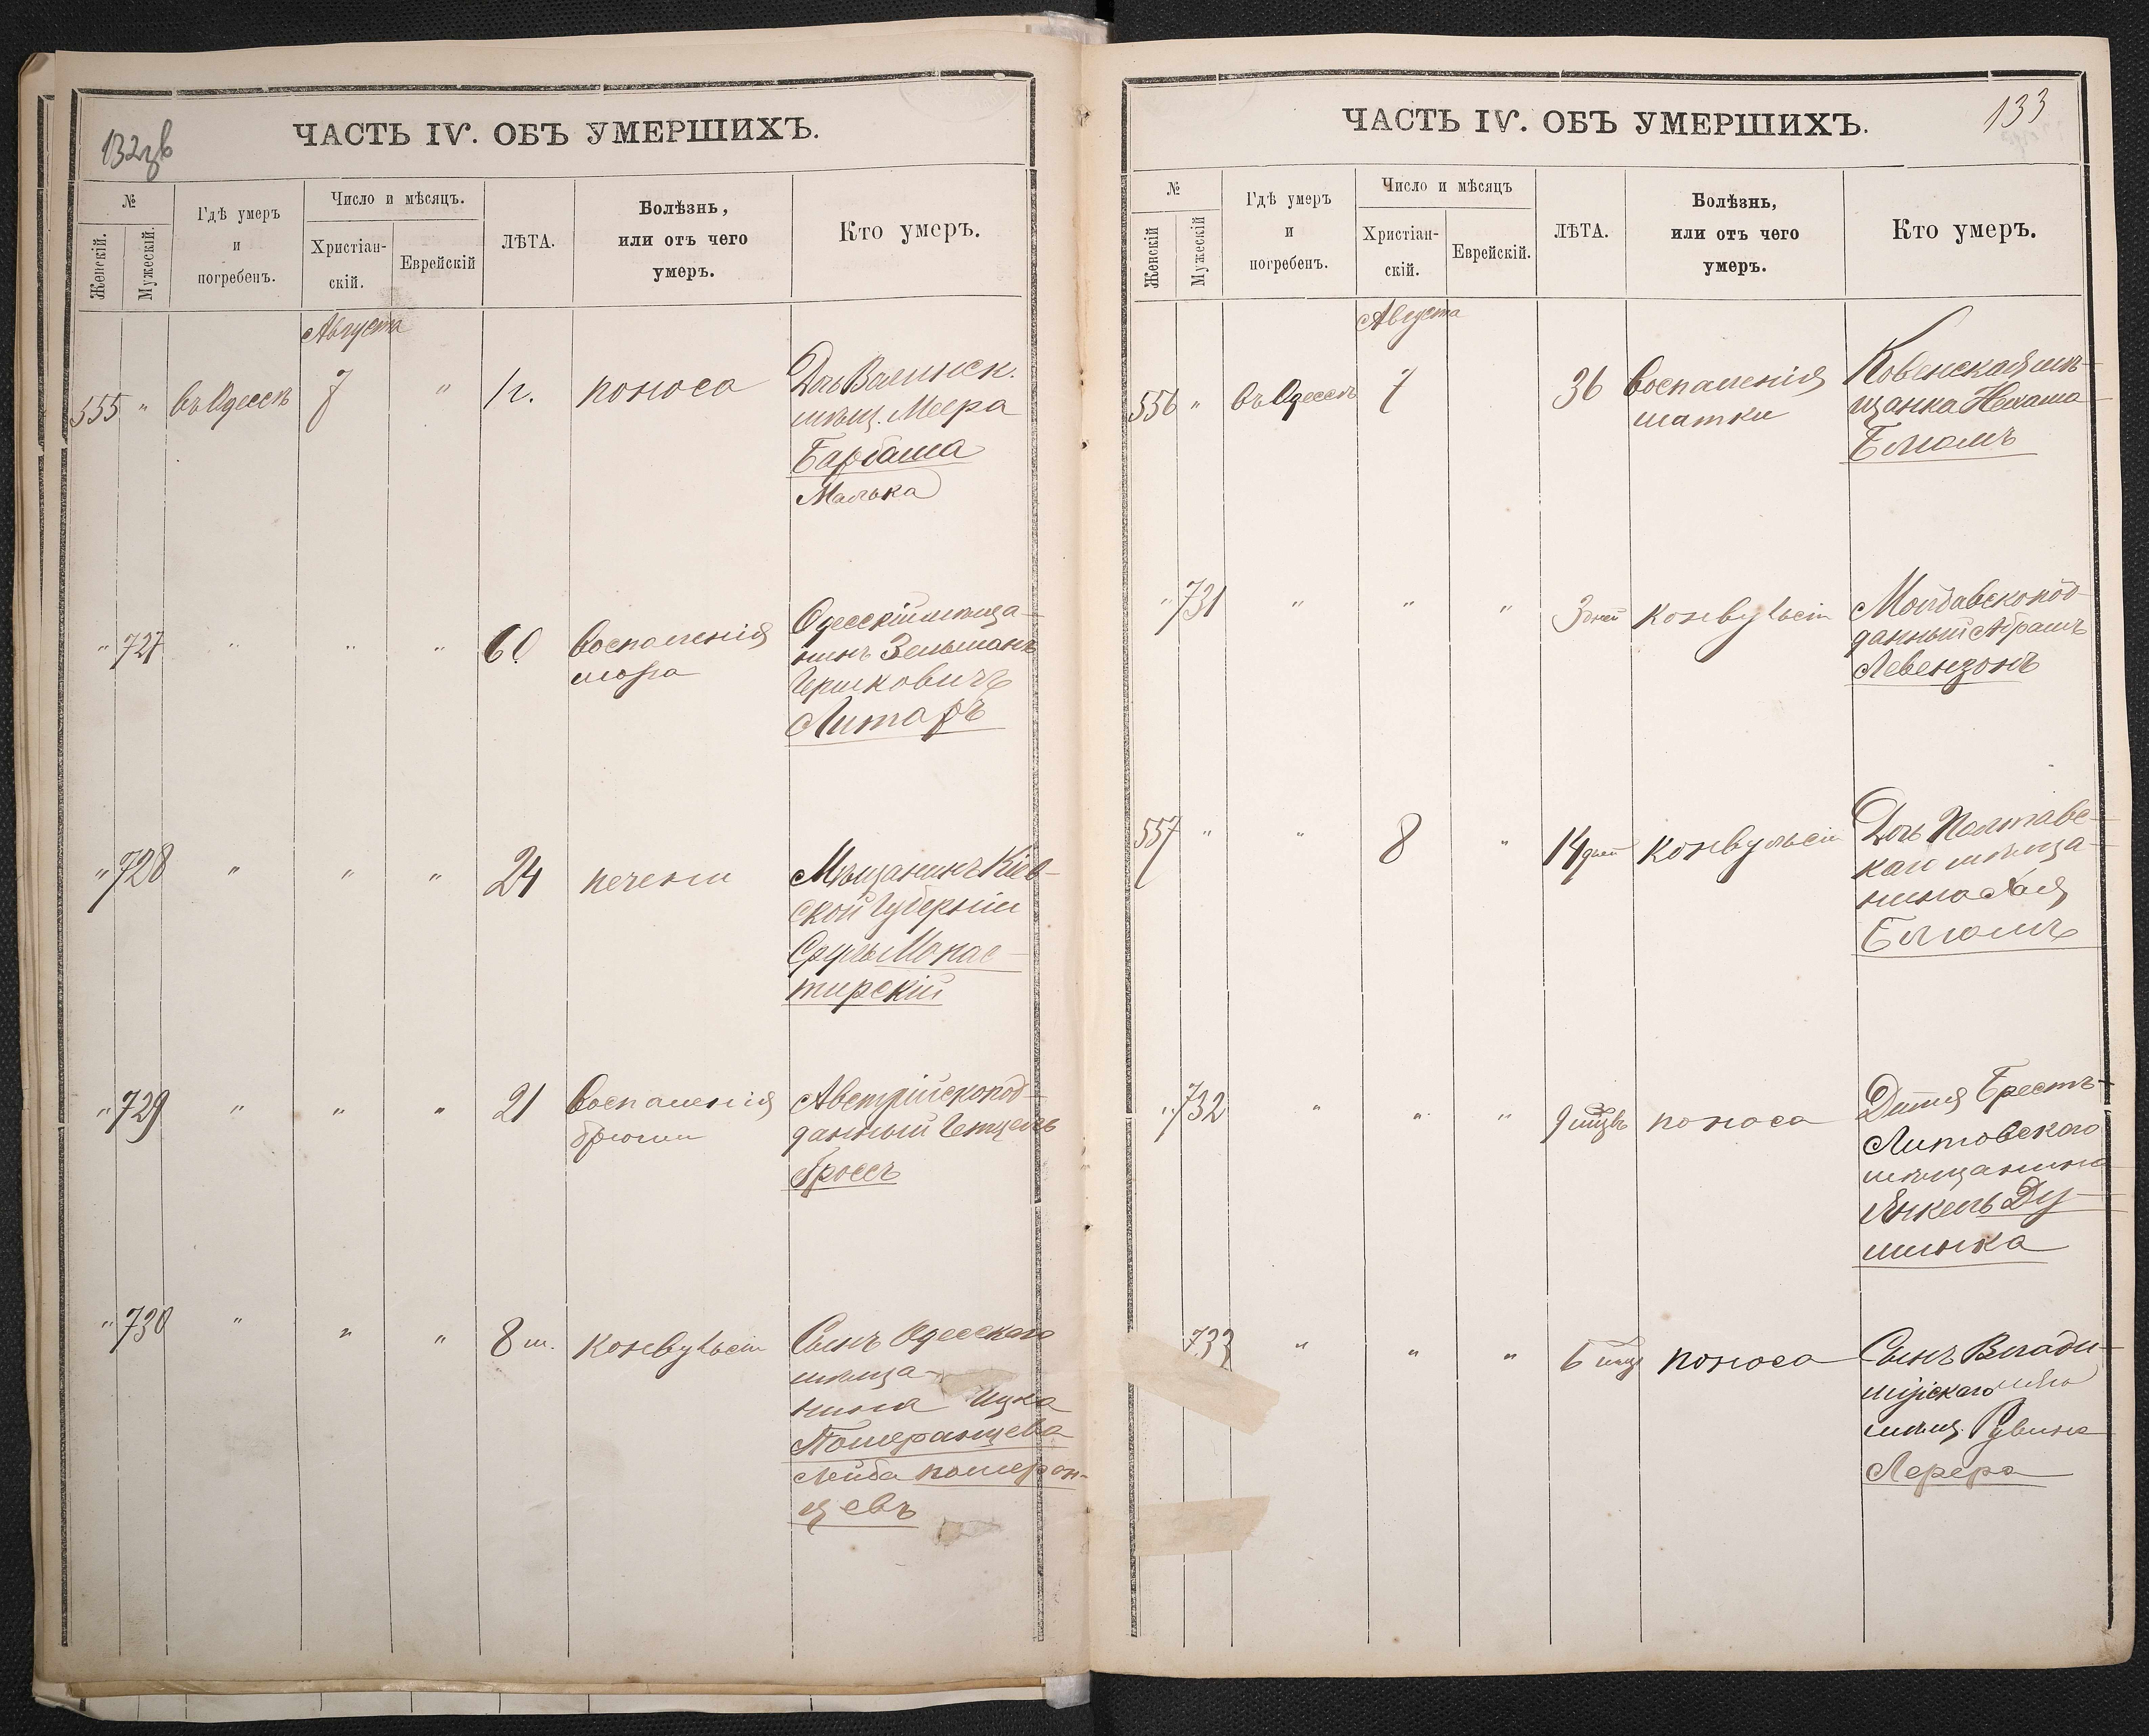 132зв
ЧАСТЬ IV. ОБЪ УМЕРШИХЪ.
№
Женскій.
Мужескій.
Гдѣ умеръ
и
погребенъ.
Число и мѣсяцъ.
Христіан-
скій.
Еврейскій
ЛѢТА.
Болѣзнь,
или отъ чего
умеръ.
Кто умеръ.
Августа
555 " въ Одессѣ 7 " 1 г. поноса
Дочь Волынск.
мѣщ. Меера
Барбаша
Малька
" 727 " " " 60 воспаленія
мозга
Одесскій мѣща-
нинъ Зельманъ
Гершковичъ
Литаръ
" 728 " " " 24 печени
Мѣщанинъ Кіев-
ской Губерніи
Сруль Монас-
тирскій
" 729 " " " 21 воспаленія
брюшн
Австрійскопод-
данный Гетцель
Гроссъ
" 730 " " " 8 м. конвульсіи
Сынъ Одесскаго
мѣща-
нина Ицка
Померанцева
Лейба Померан-
цевъ
133
ЧАСТЬ IV. ОБЪ УМЕРШИХЪ.
№
Женскій
Мужескій
Гдѣ умеръ
и
погребенъ.
Число и мѣсяцъ
Христіан-
скій.
Еврейскій.
ЛѢТА.
Болѣзнь,
или отъ чего
умеръ.
Кто умеръ.
Августа
556 " въ Одессѣ 7 36 воспаленія
матки
Ковенская мѣ-
щанка Нехама
Блюмъ
" 731 " " " 3 дней конвульсіи
Молдавскопод-
данный Абрамъ
Левензонъ
557 " " 8 " 14 дней конвульсіи
Дочь Полтавс-
каго мѣща-
нина Хая
Блюмъ
" 732 " " " 9 мѣц поноса
Дитя Брестъ-
Литовскаго
мѣщанина
Янкель Ду-
минка
733 " " " 6 мѣц поноса
Сынъ Влади-
мірскаго
мѣщ. Рувина
Лерера